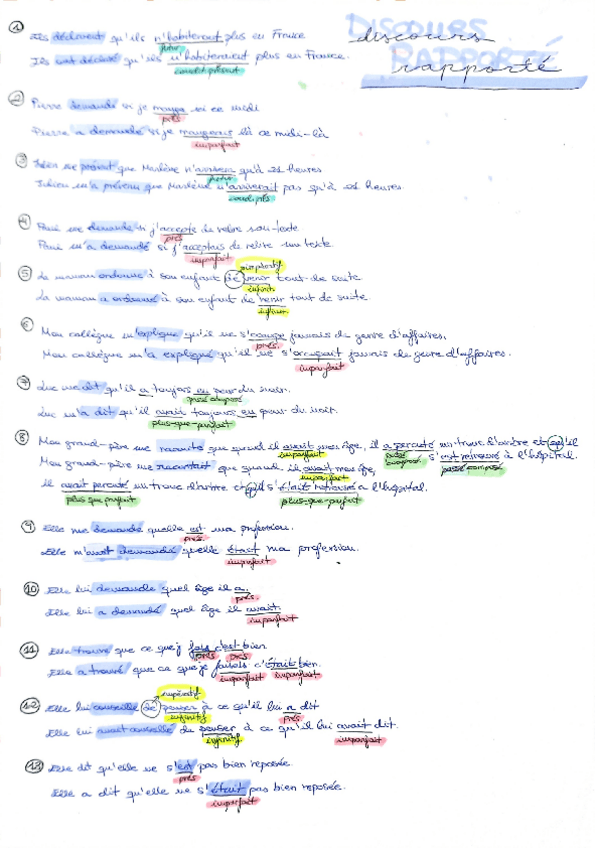 DISCOURS RAPPORTÉ
discours
rapporté
1 Ils déclarent qu'ils n'habiteront plus en France
futur
Ils ont déclaré qu'ils n'habiteraient plus en France.
condit présent
2 Pierre demande si je mange ici ce midi
prés
Pierre a demandé si je mangerais là ce midi-là
imparfait
3 Julien me prévient que Marlène n'arrivera qu'à 21 heures
futur
Julien m'a prévenu que Marlène n'arriverait pas qu'à 21 heures
cond prés
4 Paul me demande si j'accepte de relire son texte
prés
Paul m'a demandé si j'acceptais de relire son texte.
imparfait
impératif
5 La maman ordonne à son enfant de venir tout de suite
infinitif
La maman a ordonné à son enfant de venir tout de suite.
infinitif
6 Mon collègue m'explique qu'il ne s'occupe jamais du genre d'affaires.
prés.
Mon collègue m'a expliqué qu'il ne s'occupait jamais du genre d'affaires.
imparfait
7 Luc me dit qu'il a toujours eu peur du noir.
passé composé
Luc m'a dit qu'il avait toujours eu peur du noir.
plus-que-parfait
8 Mon grand-père me raconte que quand il avait mon âge, il a percuté un tronc d'arbre et qu'il
imparfait
passé composé
Mon grand-père me racontait que quand il avait mon âge, s'est retrouvé à l'hôpital.
imparfait
passé composé
il avait percuté un tronc d'arbre et qu'il s'était retrouvé à l'hôpital.
plus que parfait
plus-que-parfait
9 Elle me demande quelle est ma profession.
prés.
Elle m'avait demandé quelle était ma profession.
imparfait
10 Elle lui demande quel âge il a.
prés.
Elle lui a demandé quel âge il avait.
imparfait
11 Elle trouve que ce que j fais c'est bien
prés prés
Elle a trouvé que ce que je faisais c'était bien.
imparfait imparfait
impératif
12 Elle lui conseille de penser à ce qu'il lui a dit
infinitif prés
Elle lui avait conseillé de penser à ce qu'il lui avait dit.
infinitif imparfait
13 Elle dit qu'elle ne s'est pas bien reposée.
prés
Elle a dit qu'elle ne s'était pas bien reposée.
imparfait